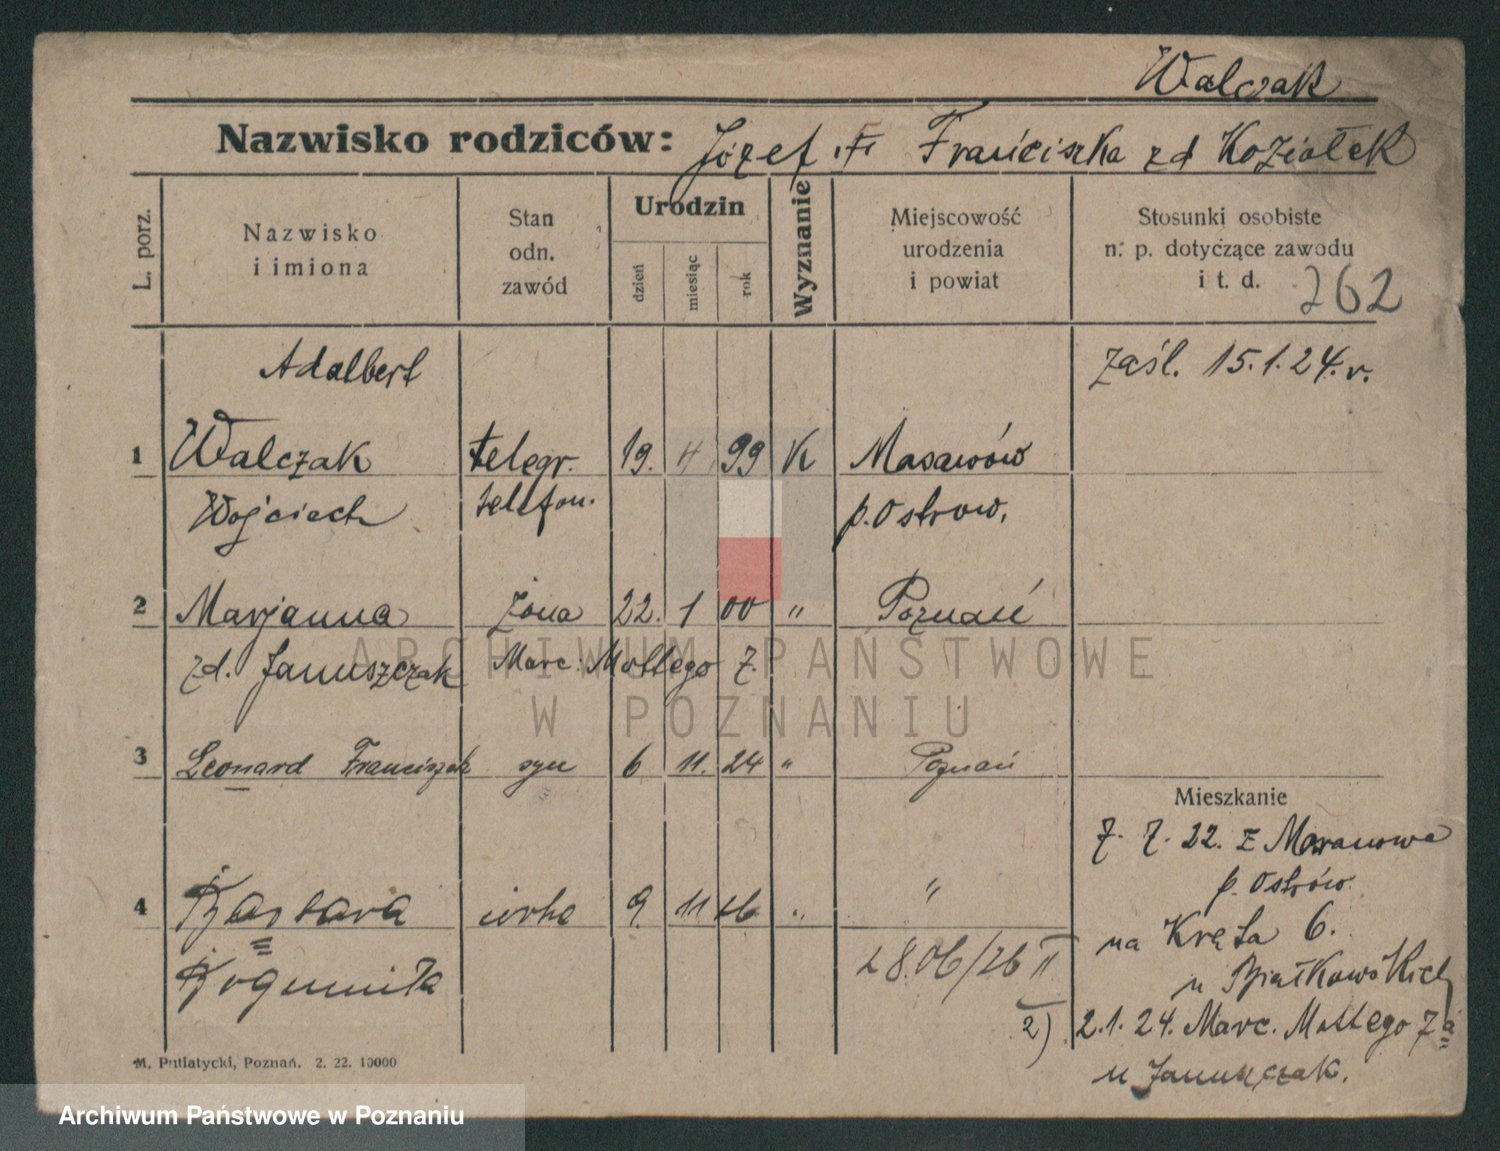 Walczak
Nazwisko rodziców: Józef i Franciszka zd Koziołek
L. porz.
Nazwisko i imiona
Stan odn. zawód
Urodzin
dzień miesiąc rok
Wyznanie
Miejscowość urodzenia i powiat
Stosunki osobiste
n. p. dotyczące zawodu
i t. d. 262
Adalbert zaśl. 15.1.24.r.
1 Walczak telegr. 19. 4 99 K Masanów
Wojciech telefon. p. Ostrow.
2 Marjanna żona 22. 1 00 " Poznań
zd. Januszczak Marc. Mottego 7.
ARCHIWUM PAŃSTWOWE
W POZNANIU
3 Leonard Franciszek syn 6 11. 24 " Poznań
Mieszkanie
7. 7. 22. z Masanowa
p. Ostrów
4 Barbara córka 9. 11 26 " "
na Kręta 6.
Bogumiła 28.06/26 II
u Białkowskich
2) 2.1.24. Marc. Mottego 7a
u Januszczak.
M. Putiatycki, Poznań. 2. 22. 10000
Archiwum Państwowe w Poznaniu